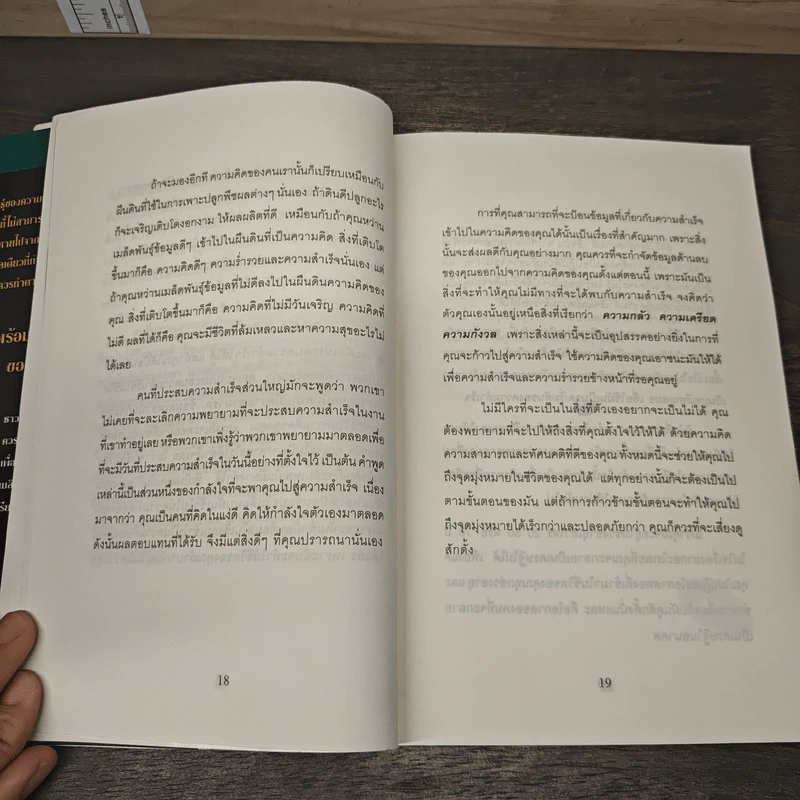 inches
รู้ของความ
ที่ไม่สามาร
ควรทำตา
พร้อม
ขอ
ถ้าจะมองอีกที ความคิดของคนเรานั้นก็เปรียบเหมือนกับ
ผืนดินที่ใช้ในการเพาะปลูกพืชผลต่างๆ นั่นเอง ถ้าดินดีปลูกอะไร
ก็จะเจริญเติบโตงอกงาม ให้ผลผลิตที่ดี เหมือนกับถ้าคุณหว่าน
เมล็ดพันธุ์ข้อมูลดีๆ เข้าไปในผืนดินที่เป็นความคิด สิ่งที่เติบโต
ขึ้นมาก็คือ ความคิดดีๆ ความร่ำรวยและความสำเร็จนั่นเอง แต่
ถ้าคุณหว่านเมล็ดพันธุ์ข้อมูลที่ไม่ดีลงไปในผืนดินความคิดของ
คุณ สิ่งที่เติบโตขึ้นมาก็คือ ความคิดที่ไม่มีวันเจริญ ความคิดที่
ไม่ดี ผลที่ได้ก็คือ คุณจะมีชีวิตที่ล้มเหลวและหาความสุขอะไรไม่
ได้เลย
คนที่ประสบความสำเร็จส่วนใหญ่มักจะพูดว่า พวกเขา
ไม่เคยที่จะละเลิกความพยายามที่จะประสบความสำเร็จในงาน
ที่เขาทำอยู่เลย หรือพวกเขาเพิ่งรู้ว่าพวกเขาพยายามมาตลอดเพื่อ
ที่จะมีวันที่ประสบความสำเร็จในวันนี้อย่างที่ตั้งใจไว้ เป็นต้น คำพูด
เหล่านี้เป็นส่วนหนึ่งของกำลังใจที่จะพาคุณไปสู่ความสำเร็จ เนื่อง
มาจากว่า คุณเป็นคนที่คิดในแง่ดี คิดให้กำลังใจตัวเองมาตลอด
ดังนั้นผลตอบแทนที่ได้รับ จึงมีแต่สิ่งดีๆ ที่คุณปรารถนานั่นเอง
18
การที่คุณสามารถที่จะป้อนข้อมูลที่เกี่ยวกับความสำเร็จ
เข้าไปในความคิดของคุณได้นั้นเป็นเรื่องที่สำคัญมาก เพราะสิ่ง
นั้นจะส่งผลดีกับคุณอย่างมาก คุณควรที่จะกำจัดข้อมูลด้านลบ
ของคุณออกไปจากความคิดของคุณตั้งแต่ตอนนี้ เพราะมันเป็น
สิ่งที่จะทำให้คุณไม่มีทางที่จะได้พบกับความสำเร็จ จงคิดว่า
ตัวคุณเองนั้นอยู่เหนือสิ่งที่เรียกว่า ความกลัว ความเครียด
ความกังวล เพราะสิ่งเหล่านี้จะเป็นอุปสรรคอย่างยิ่งในการที่
คุณจะก้าวไปสู่ความสำเร็จ ใช้ความคิดของคุณเอาชนะมันให้ได้
เพื่อความสำเร็จและความร่ำรวยข้างหน้าที่รอคุณอยู่
ไม่มีใครที่จะเป็นในสิ่งที่ตัวเองอยากจะเป็นไม่ได้ คุณ
ต้องพยายามที่จะไปให้ถึงสิ่งที่คุณตั้งใจไว้ให้ได้ ด้วยความคิด
ความสามารถและทัศนคติที่ดีของคุณ ทั้งหมดนี้จะช่วยให้คุณไป
ถึงจุดมุ่งหมายในชีวิตของคุณได้ แต่ทุกอย่างนั้นก็จะต้องเป็นไป
ตามขั้นตอนของมัน แต่ถ้าการก้าวข้ามขั้นตอนจะทำให้คุณไป
ถึงจุดมุ่งหมายได้เร็วกว่าและปลอดภัยกว่า คุณก็ควรที่จะเสี่ยงดู
สักตั้ง
19